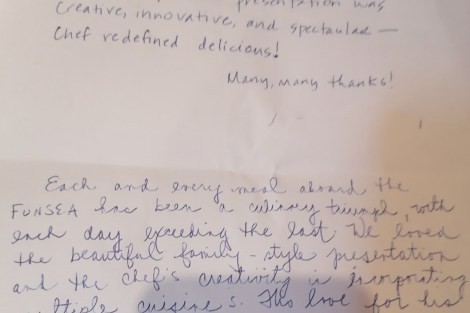 presentation was
Creative, innovative, and spectacular —
Chef redefined delicious!
Many, many thanks!
Each and every meal aboard the
FUNSEA has been a culinary triumph, with
each day exceeding the last. We loved
the beautiful family-style presentation
and the chef's creativity in incorporating
multiple cuisines. His love for his